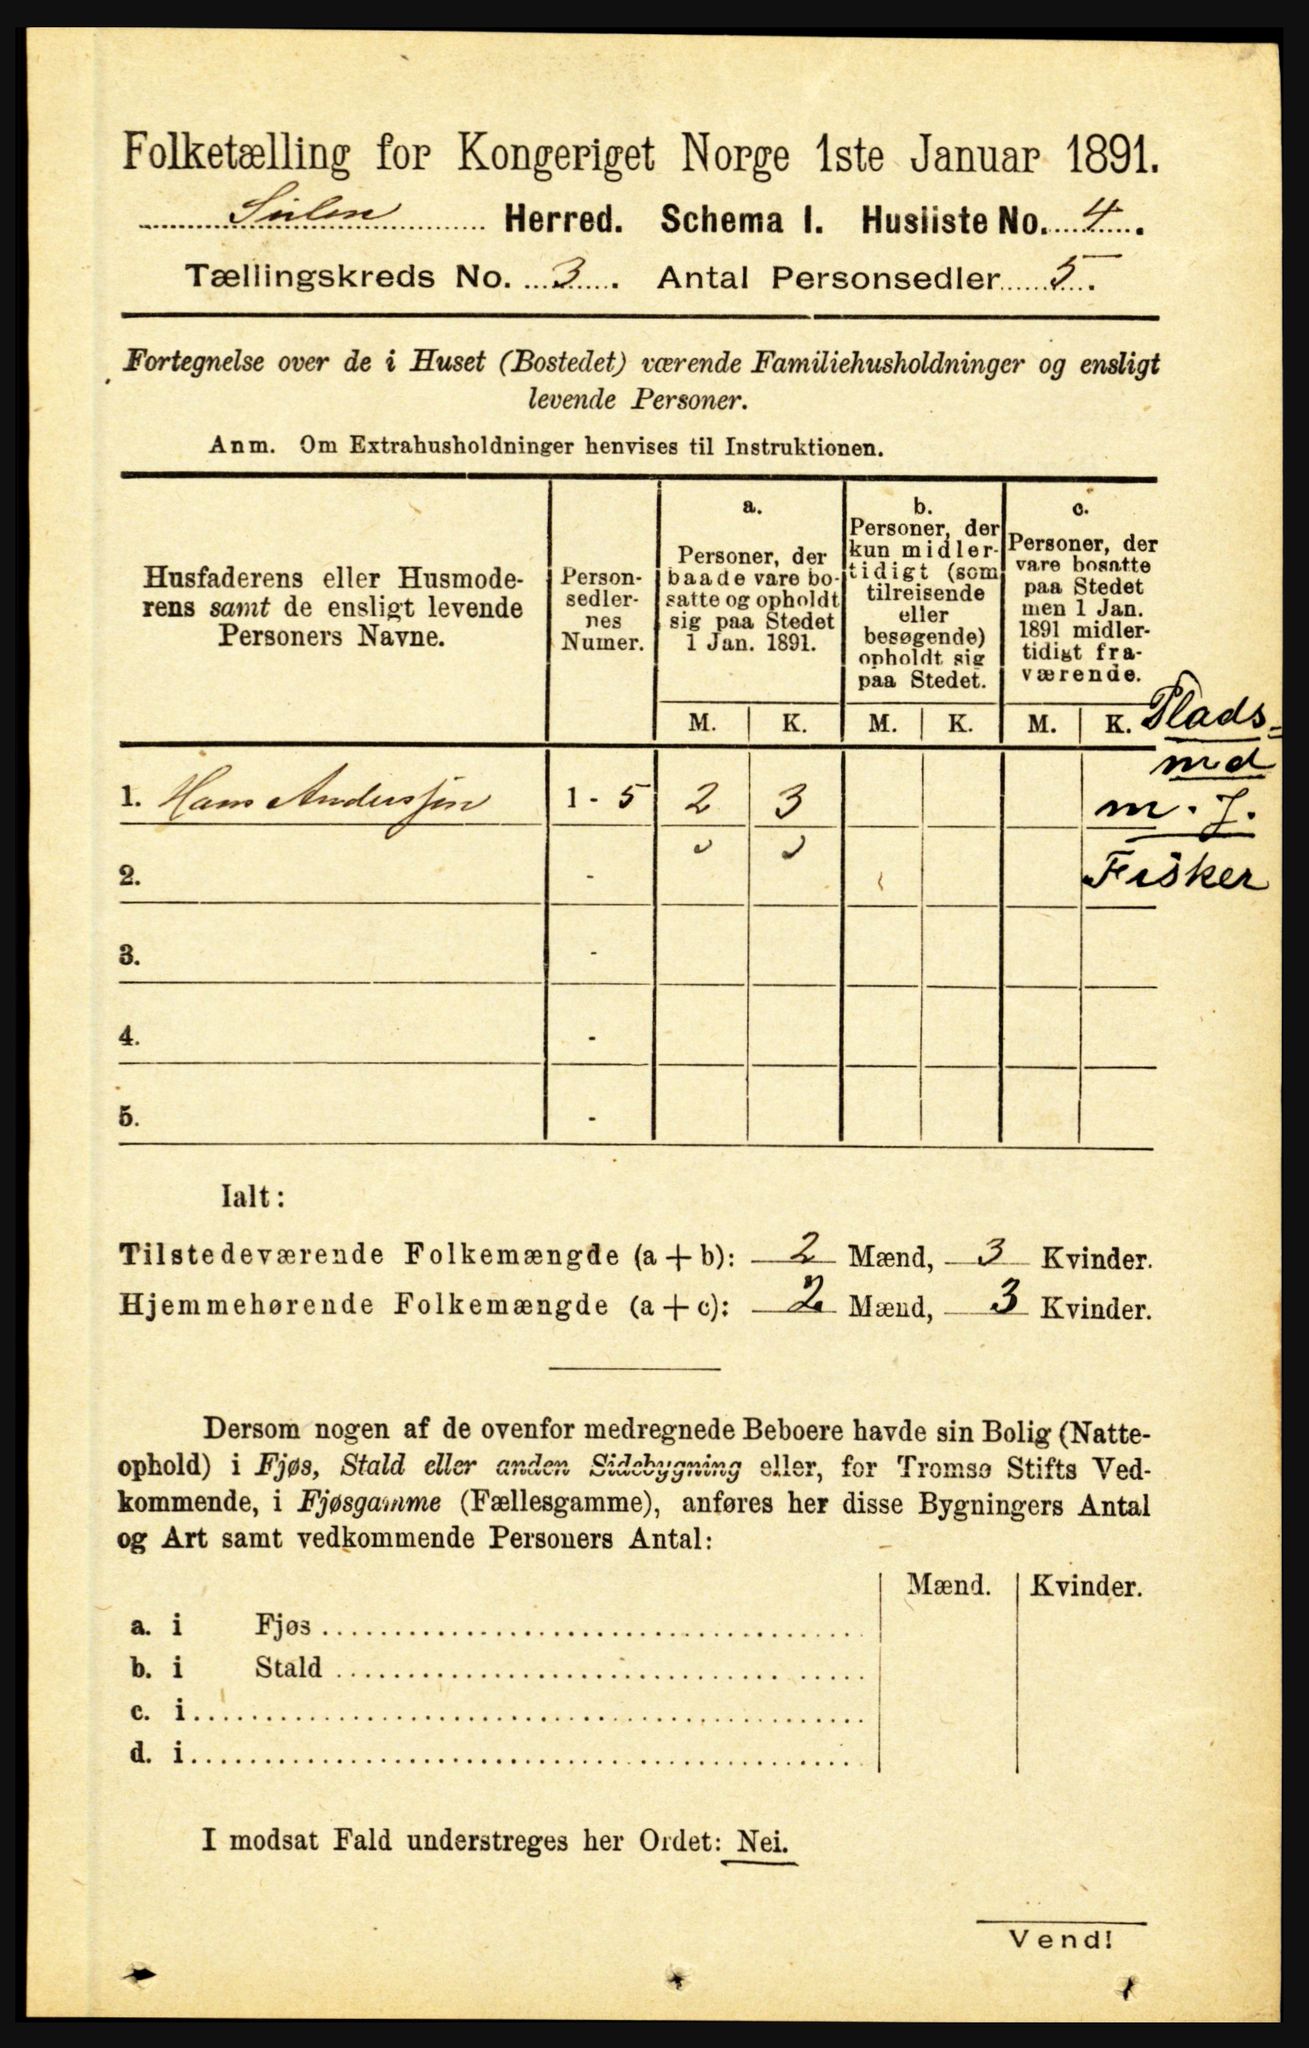 Folketælling for Kongeriget Norge 1ste Januar 1891.
Sulen Herred. Schema I. Husliste No. 4.
Tællingskreds No. 3. Antal Personsedler 5.
Fortegnelse over de i Huset (Bostedet) værende Familiehusholdninger og ensligt
levende Personer.
Anm. Om Extrahusholdninger henvises til Instruktionen.
Husfaderens eller Husmode-
rens samt de ensligt levende
Personers Navne.
Person-
sedler-
nes
Numer.
a.
Personer, der
baade vare bo-
satte og opholdt
sig paa Stedet
1 Jan. 1891.
b.
Personer, der
kun midler-
tidigt (som
tilreisende
eller
besøgende)
opholdt sig
paa Stedet.
c.
Personer, der
vare bosatte
paa Stedet
men 1 Jan.
1891 midler-
tidigt fra-
værende.
M. K. M. K. M. K.
Plads-
md
m. J.
Fisker
1. Hans Anderssen 1 - 5 2 3
2. -
3. -
4. -
5. -
Ialt:
Tilstedeværende Folkemængde (a + b): 2 Mænd, 3 Kvinder.
Hjemmehørende Folkemængde (a + c): 2 Mænd, 3 Kvinder.
Dersom nogen af de ovenfor medregnede Beboere havde sin Bolig (Natte-
ophold) i Fjøs, Stald eller anden Sidebygning eller, for Tromsø Stifts Ved-
kommende, i Fjøsgamme (Fællesgamme), anføres her disse Bygningers Antal
og Art samt vedkommende Personers Antal:
Mænd. Kvinder.
a. i Fjøs
b. i Stald
c. i
d. i
I modsat Fald understreges her Ordet: Nei.
Vend!